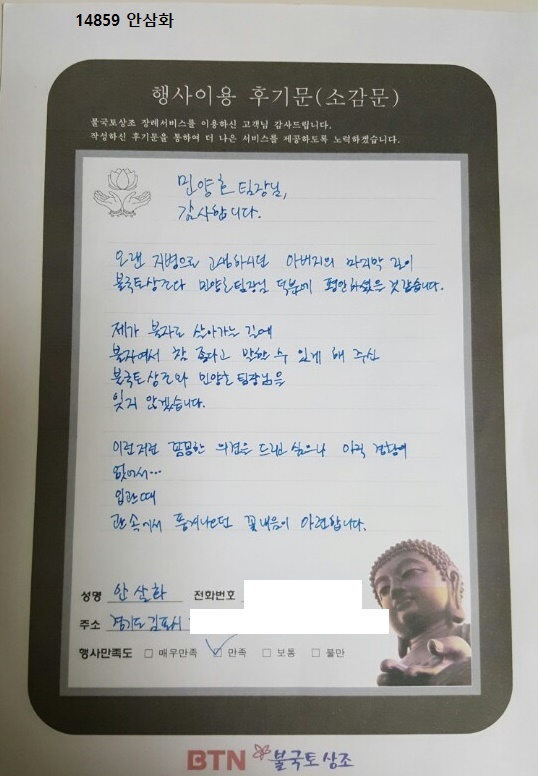 14859 안삼화
행사이용 후기문(소감문)
불국토상조 장례서비스를 이용하신 고객님 감사드립니다.
작성하신 후기문을 통하여 더 나은 서비스를 제공하도록 노력하겠습니다.
민양호 팀장님,
감사합니다.
오랜 지병으로 고생하시던 아버지의 마지막 길이
불국토상조와 민양호팀장님 덕분에 평안하셨은 것 같습니다.
제가 불자로 살아가는 길에
불자여서 참 좋다고 말할 수 있게 해 주신
불국토상조와 민양호팀장님을
잊지 않겠습니다.
이런저런 꼼꼼한 의견은 드리고 싶으나 아직 경황이
없어서...
입관때
관속에서 풍겨나오던 꽃내음이 아련합니다.
성명 안삼화 전화번호
주소 경기도 김포시
행사만족도 □ 매우만족 □ 만족 □ 보통 □ 불만
BTN 불국토상조